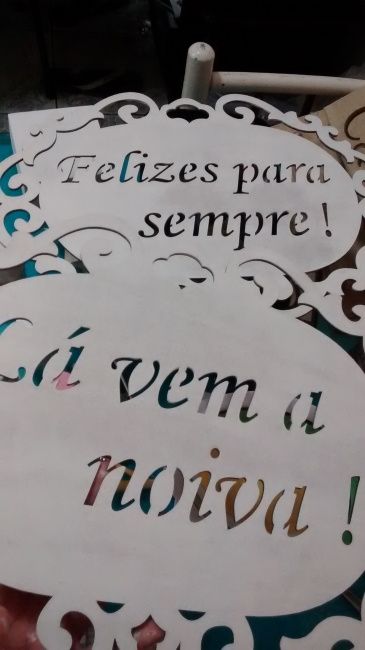 Felizes para
sempre!
Lá vem a
noiva!